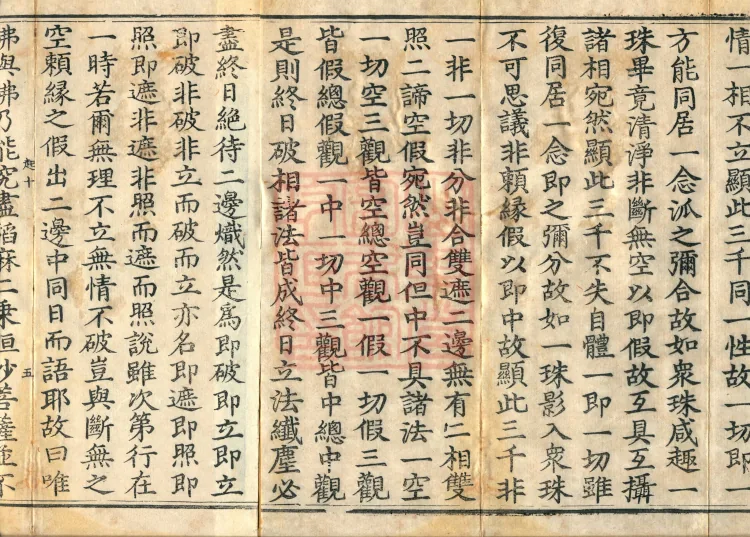 情一相不立顯此三千同一性故一切即一
方能同居一念派之彌合故如衆珠咸趣一
珠畢竟清淨非斷無空以即假故互具互攝
諸相宛然顯此三千不失自體一即一切雖
復同居一念即之彌分故如一珠影入衆珠
不可思議非賴緣假以即中故顯此三千非
一非一切非分非合雙遮二邊無有二相雙
照二諦空假宛然豈同但中不具諸法一空
一切空三觀皆空總空觀一假一切假三觀
皆假總假觀一中一切中三觀皆中總中觀
是則終日破相諸法皆成終日立法纖塵必
盡終日絕待二邊熾然是爲即破即立即立
即破非破非立而破而立亦名即遮即照即
照即遮非遮非照而遮而照說雖次第行在
一時若爾無理不立無情不破豈與斷無之
空賴緣之假出二邊中同日而語耶故曰唯
起十 五
佛與佛乃能究盡稻麻二乗恒沙菩薩並不